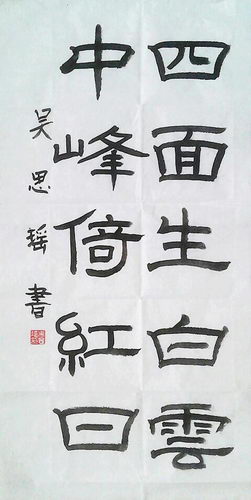 四面生白雲
中峰倚紅日
吴思瑶書